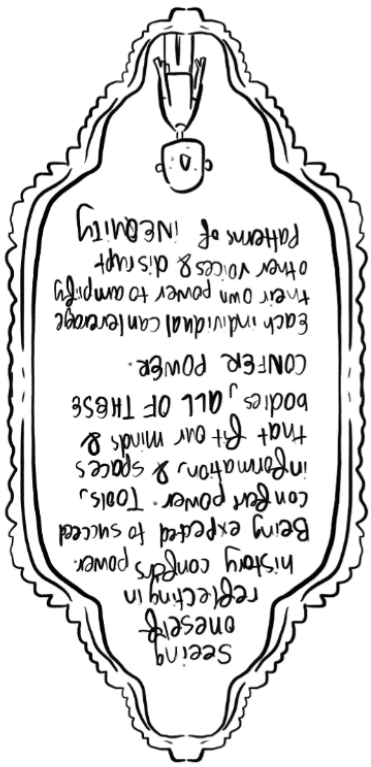 Seeing
oneself
reflecting in
history confers power.
Being expected to succeed
confers power. Tools,
information, & spaces
that fit our minds &
bodies, ALL OF THESE
CONFER POWER.
Each individual can leverage
their own power to amplify
other voices & disrupt
Patterns of iNEQUITY